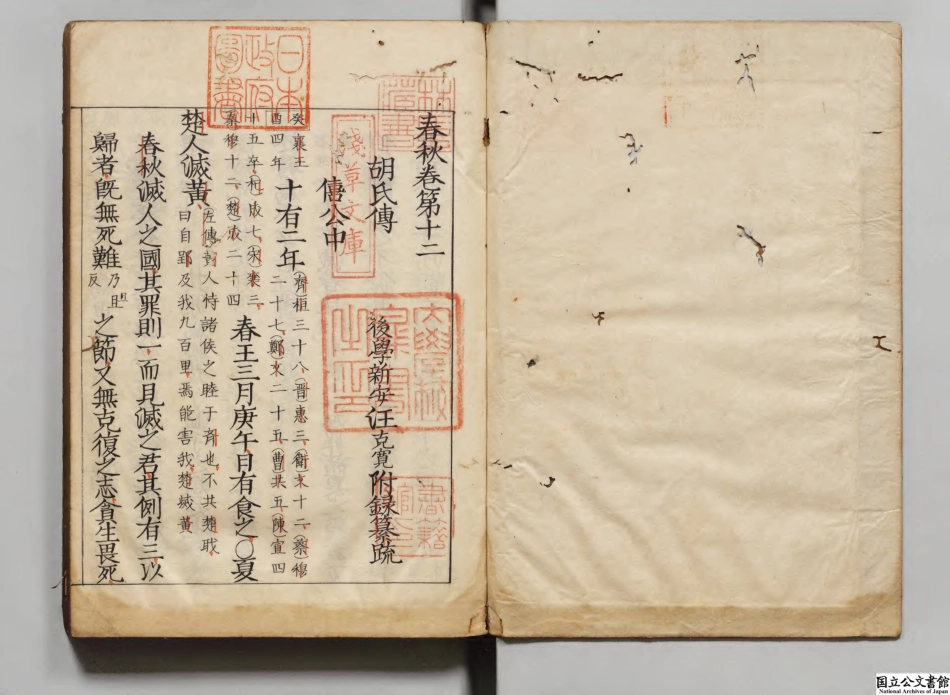 春秋卷第十二
胡氏傳 後學新安汪克寬附錄纂疏
僖公中
癸酉 襄王四年 十有二年 齊桓三十八晉惠三衞文十二蔡穆二十七鄭文二十五曹共五陳宣四
十五卒杞成七宋襄三秦穆十二楚成二十四 春王三月庚午日有食之〇夏
楚人滅黃 左傳黃人恃諸侯之睦于齊也不共楚職曰自郢及我九百里焉能害我楚滅黃
春秋滅人之國其罪則一而見滅之君其例有三以
歸者旣無死難乃旦反之節又無克復之志貪生畏死
日本政府圖書
林氏藏書
淺草文庫
大學校圖書之印
書籍館印
国立公文書館
National Archives of Japan